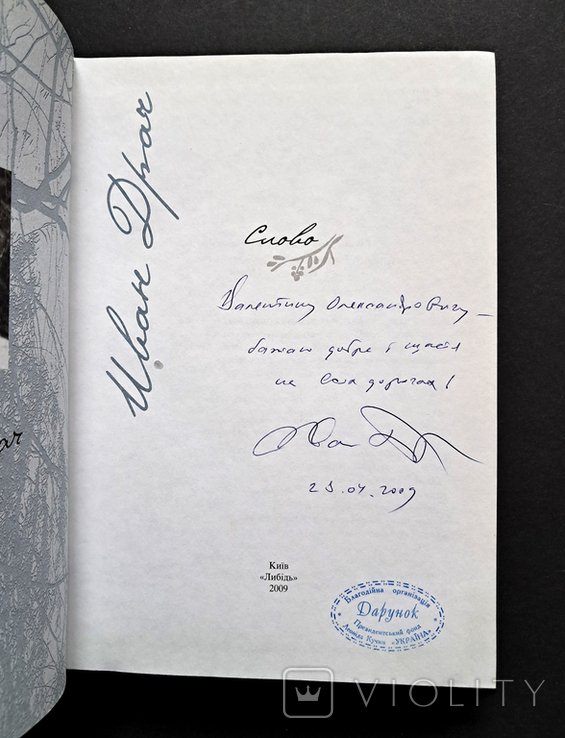 Иван Драч
Слово
Валентину Олександровичу –
бажаю добра і щастя
на Ваших дорогах!
Іван Драч
23.04.2009
Київ
«Либідь»
2009
Благодійна організація
Дарунок
Президентський фонд
Леоніда Кучми «УКРАЇНА»
VIOLITY